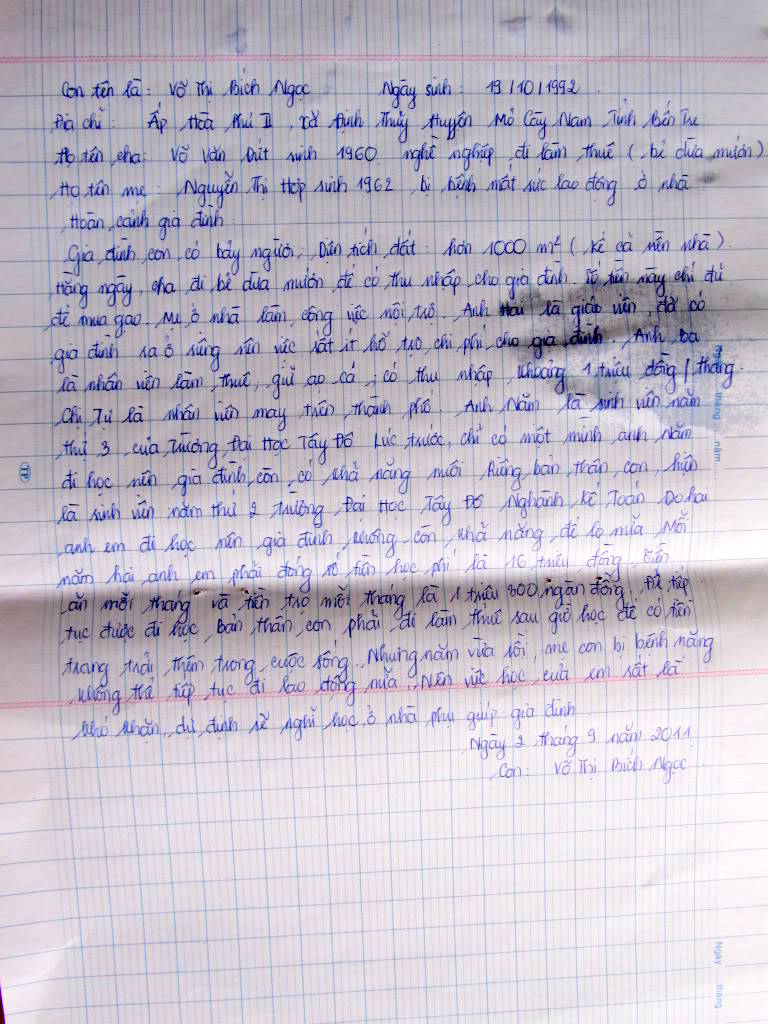 Con tên là: Võ Thị Bích Ngọc Ngày sinh: 19/10/1992.
Địa chỉ: Ấp Hòa Phú II, xã Định Thủy Huyện Mỏ Cày Nam Tỉnh Bến Tre
Họ tên cha: Võ Văn Dứt sinh 1960 nghề nghiệp đi làm thuê (bẻ dừa mướn)
Họ tên mẹ: Nguyễn Thị Hợp sinh 1962 bị bệnh mất sức lao động ở nhà
Hoàn cảnh gia đình:
Gia đình con có bảy người. Diện tích đất hơn 1000 m² (kể cả nền nhà).
Hằng ngày, cha đi bẻ dừa mướn để có thu nhập cho gia đình. Số tiền này chỉ đủ
để mua gạo. Mẹ ở nhà làm công việc nội trợ. Anh Hai là giáo viên, đã có
gia đình ra ở riêng nên việc rất ít hỗ trợ chi phí cho gia đình. Anh ba
là nhân viên làm thuê, giữ ao cá, có thu nhập khoảng 1 triệu đồng/tháng.
Chị Tư là nhân viên may trên thành phố. Anh Năm là sinh viên năm
thứ 3 của Trường Đại Học Tây Đô Lúc trước, chỉ có một mình anh Năm
đi học nên gia đình còn có khả năng nuôi Riêng bản thân con, hiện
là sinh viên năm thứ 2 trường Đại Học Tây Đô Nghành Kế Toán. Do hai
anh em đi học nên gia đình không còn khả năng để lo nữa Mỗi
năm hai anh em phải đóng số tiền học phí là 16 triệu đồng. Tiền
ăn mỗi tháng và tiền trọ mỗi tháng là 1 triệu 800 ngàn đồng. Để tiếp
tục được đi học, bản thân con phải đi làm thuê sau giờ học để có tiền
trang trải thêm trong cuộc sống. Nhưng năm vừa rồi, mẹ con bị bệnh nặng
không thể tiếp tục đi lao động nữa. Nên việc học của em rất là
khó khăn, dự định sẽ nghỉ học ở nhà phụ giúp gia đình.
Ngày 2 tháng 9 năm 2011
Con: Võ Thị Bích Ngọc.
Ngày tháng năm
Ngày tháng